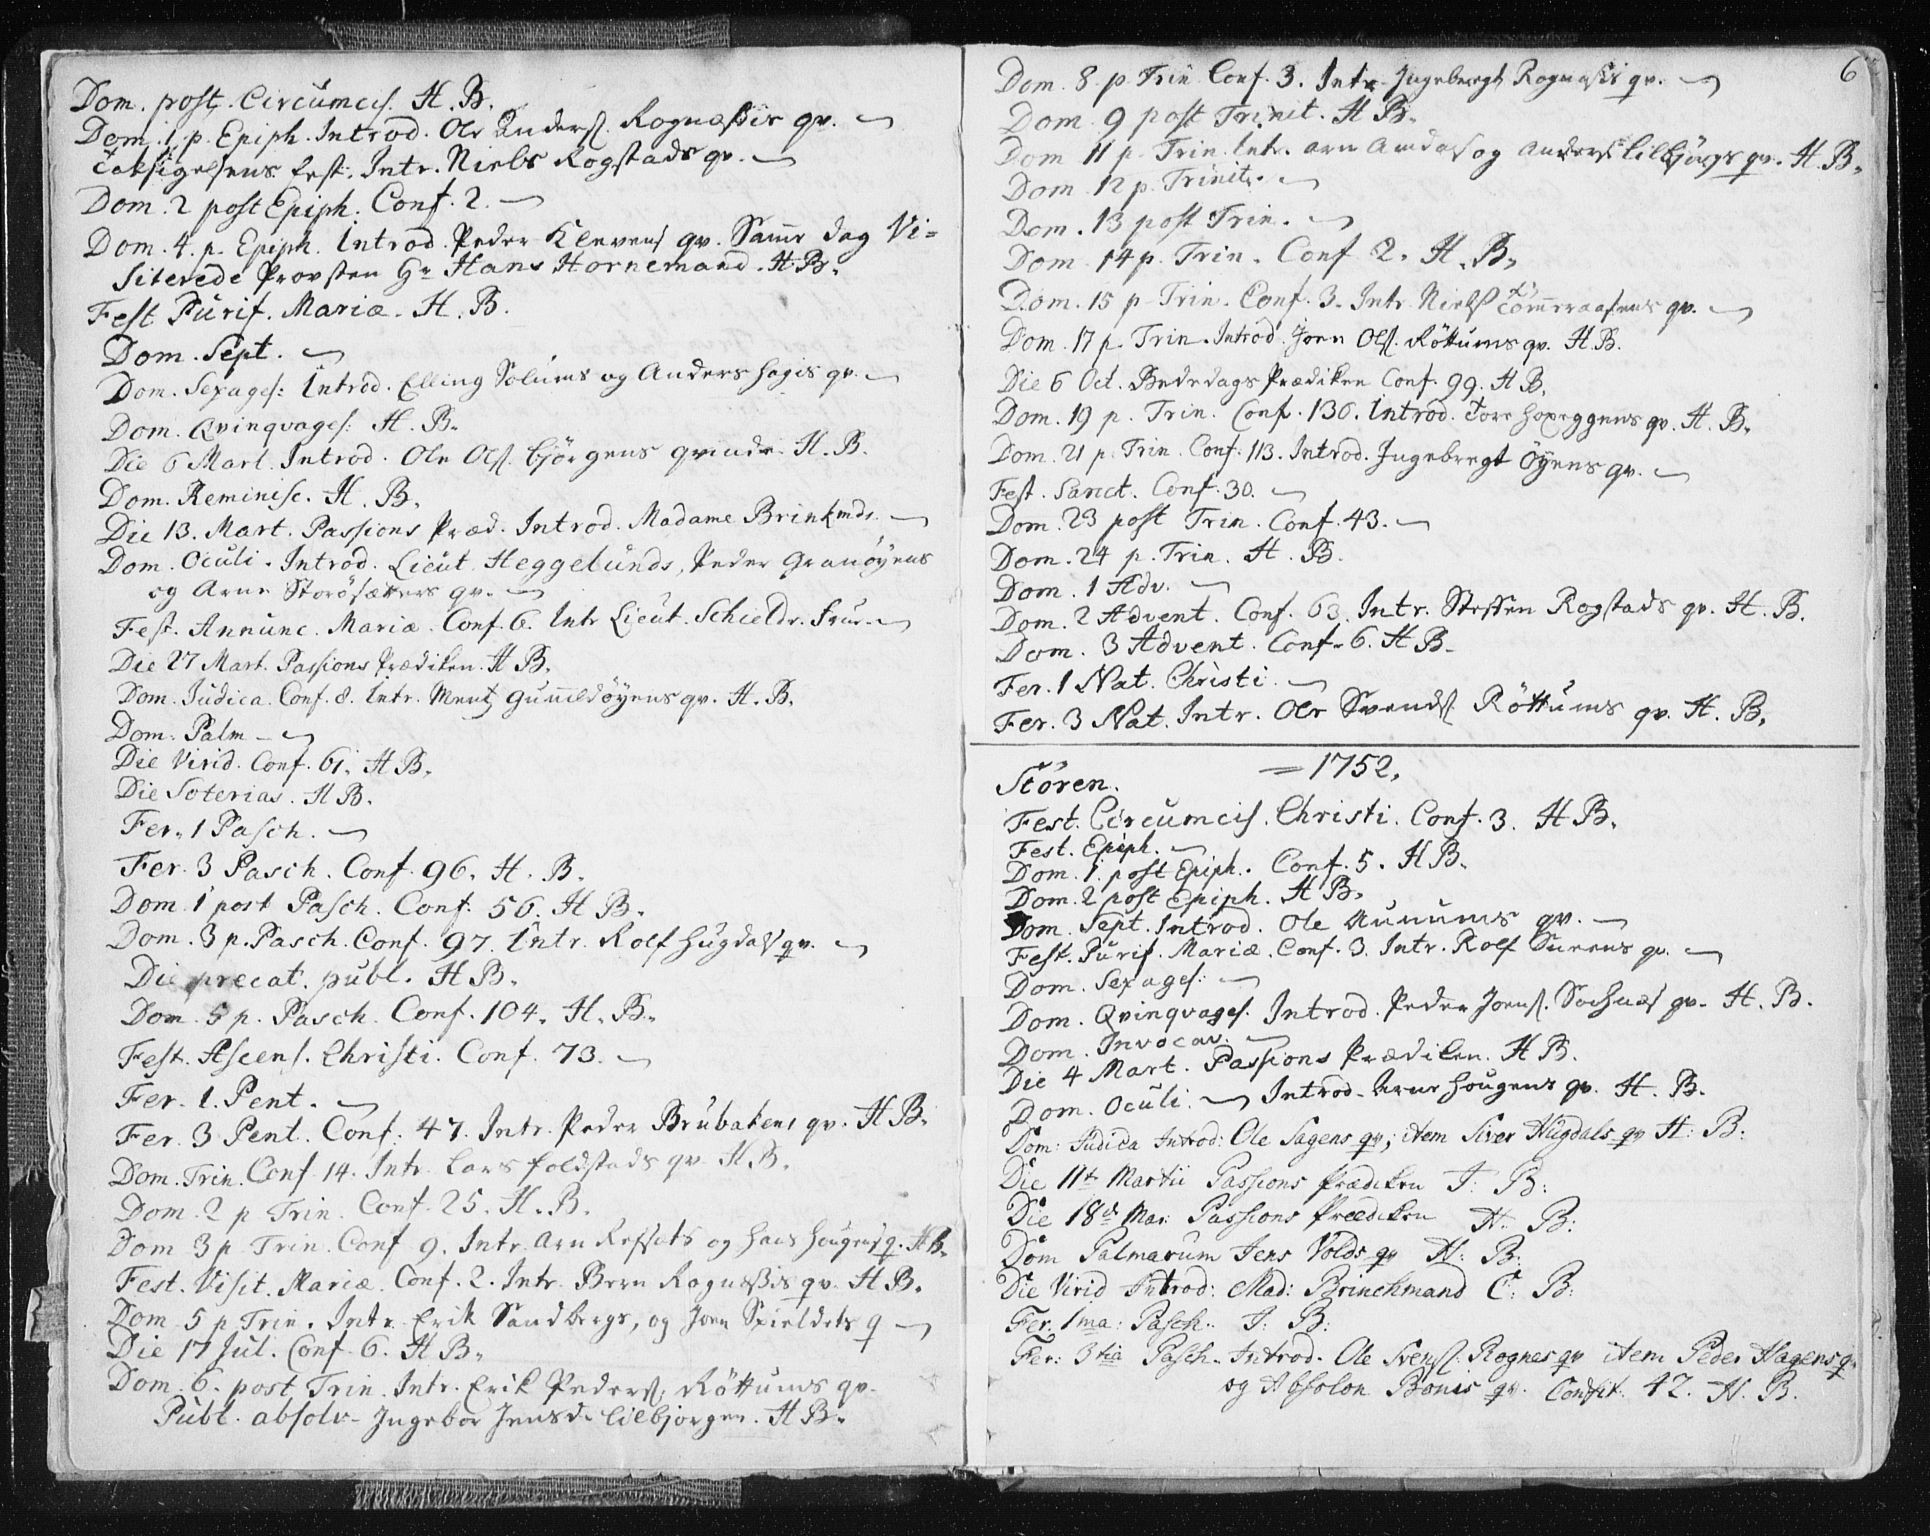 Dom. post. Circumcis. H. B.
Dom. 1 p. Epiph. Introd. Ole Anders. Rognæssis qv.
Taksigelsens fest. Intr. Niels Rogstads qv.
Dom. 2 post Epiph. Conf. 2.
Dom. 4. p. Epiph. Introd. Peder Klevens qv. Samme dag Vi=
siterede Provsten Hr Hans Hornemand. H. B.
Fest Purif. Mariæ. H. B.
Dom. Sept.
Dom. Sexages: Introd. Elling Solums og Anders hagis qv.
Dom. Qvinqvages: H. B.
Die 6 Mart. Introd. Ole Ols. bjørgens qvinde. H. B.
Dom. Reminisc. H. B.
Die 13. Mart. Passions Præd. Introd. Madame Brinkmds.
Dom. Oculi. Introd. Lieut. Heggelunds, Peder Granøyens
og Arne Storøsætters qv.
Fest. Annunc. Mariæ. Conf. 6. Intr Lieut. Schieldr. frue.
Die 27 Mart. Passions Prædiken. H. B.
Dom. Judica. Conf. 8. Intr. Mentz gunnildøyens qv. H. B.
Dom. Palm
Die Virid. Conf. 61. H B.
Die Soterias. H B.
Fer. 1 Pasch.
Fer. 3 Pasch. Conf. 96. H. B.
Dom. 1 post Pasch. Conf. 56. H B.
Dom. 3 p. Pasch. Conf. 97. Intr. Rolf hugdals qv.
Die precat. publ. H B.
Dom. 5 p. Pasch. Conf. 104. H. B.
Fest. Ascens. Christi. Conf. 73.
Fer. 1. Pent.
Fer. 3 Pent. Conf. 47. Intr. Peder Brubakens qv. H B.
Dom. Trin. Conf. 14. Intr. Lars foldstads qv H. B.
Dom. 2 p Trin. Conf. 25. H. B.
Dom 3 p Trin. Conf 9. Intr. Arn Refsets og hans hougens q. H B.
Fest. Visit. Mariæ. Conf. 2. Intr. Bern Rognæssis qv. H B.
Dom 5 p Trin. Intr. Erik Sandbergs, og Joen Spieldets q
Die 17 Jul. Conf. 6. H B.
Dom. 6. post Trin. Intr. Erik Peders. Røttums qv.
Publ. absolv. Ingebor Jensd. lilbjørgen. H B.
6
Dom. 8. p Trin Conf. 3. Intr. Ingebregt Rognæssis qv.
Dom. 9 post Trinit. H B.
Dom 11 p. Trin. Intr. Arn Amdals og Anders lilbjørgs qv. H. B.
Dom. 12 p. Trinit.
Dom. 13 post Trin.
Dom. 14 p. Trin. Conf 2. H. B.
Dom. 15 p Trin. Conf. 3. Intr. Niels Tommeraasens qv.
Dom. 17 p. Trin. Introd. Joen Ols. Røttums qv. H. B.
Die 6 Oct. Bededags Prædiken Conf. 99. H B.
Dom. 19 p. Trin. Conf. 136. Introd. Tore hoxeggens qv. H. B.
Dom. 21 p. Trin. Conf. 113. Introd. Ingebregt Öyens qv.
Fest. Sanct. Conf. 30.
Dom. 23 post Trin. Conf. 43.
Dom. 24 p. Trin. H. B.
Dom. 1 Adv.
Dom. 2 Advent. Conf. 63. Intr. Steffen Rogstads qv. H. B.
Dom. 3 Advent. Conf. 6. H B.
Fer. 1 Nat. Christi.
Fer. 3 Nat. Intr. Ole Svends. Röttums qv. H. B.
1752.
Stören.
Fest. Circumcis. Christi. Conf. 3. H B.
Fest. Epiph.
Dom. 1. post Epiph. Conf. 5. H B.
Dom. 2 post Epiph. H B.
Dom. Sept. Introd. Ole Aunums qv.
Fest. Purif. Mariæ. Conf. 3. Intr. Rolf Surens qv.
Dom. Sexages:
Dom. Qvinqvages. Introd. Peder Joens. Sochnes qv. H. B.
Dom. Invocav.
Die 4 Mart. Passions Prædiken. H B.
Dom. Oculi. Introd. Arne hougens qv. H. B.
Dom: Judica Introd: Ole Sagens qv; item Siver Hugdals qv H: B:
Die 11te Martii Passions Prædiken J: B:
Die 18de Mar: Passions Prædiken H: B:
Dom Palmarum Jens Volds qv H: B:
Die Virid Introd: Mad: Brinchmand C: B:
Fer. 1ma: Pasch: J: B:
Fer: 3tia Pasch. Introd. Ole Svens: Rognes qv item Peder Hagens qv
og Absolon Bones qv. Confit. 42. H. B.